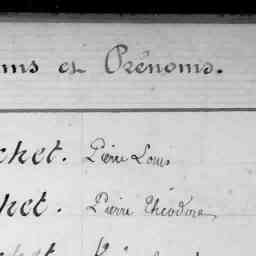 ms et Prénoms.
chet. Pierre Louis
het. Pierre Théodore